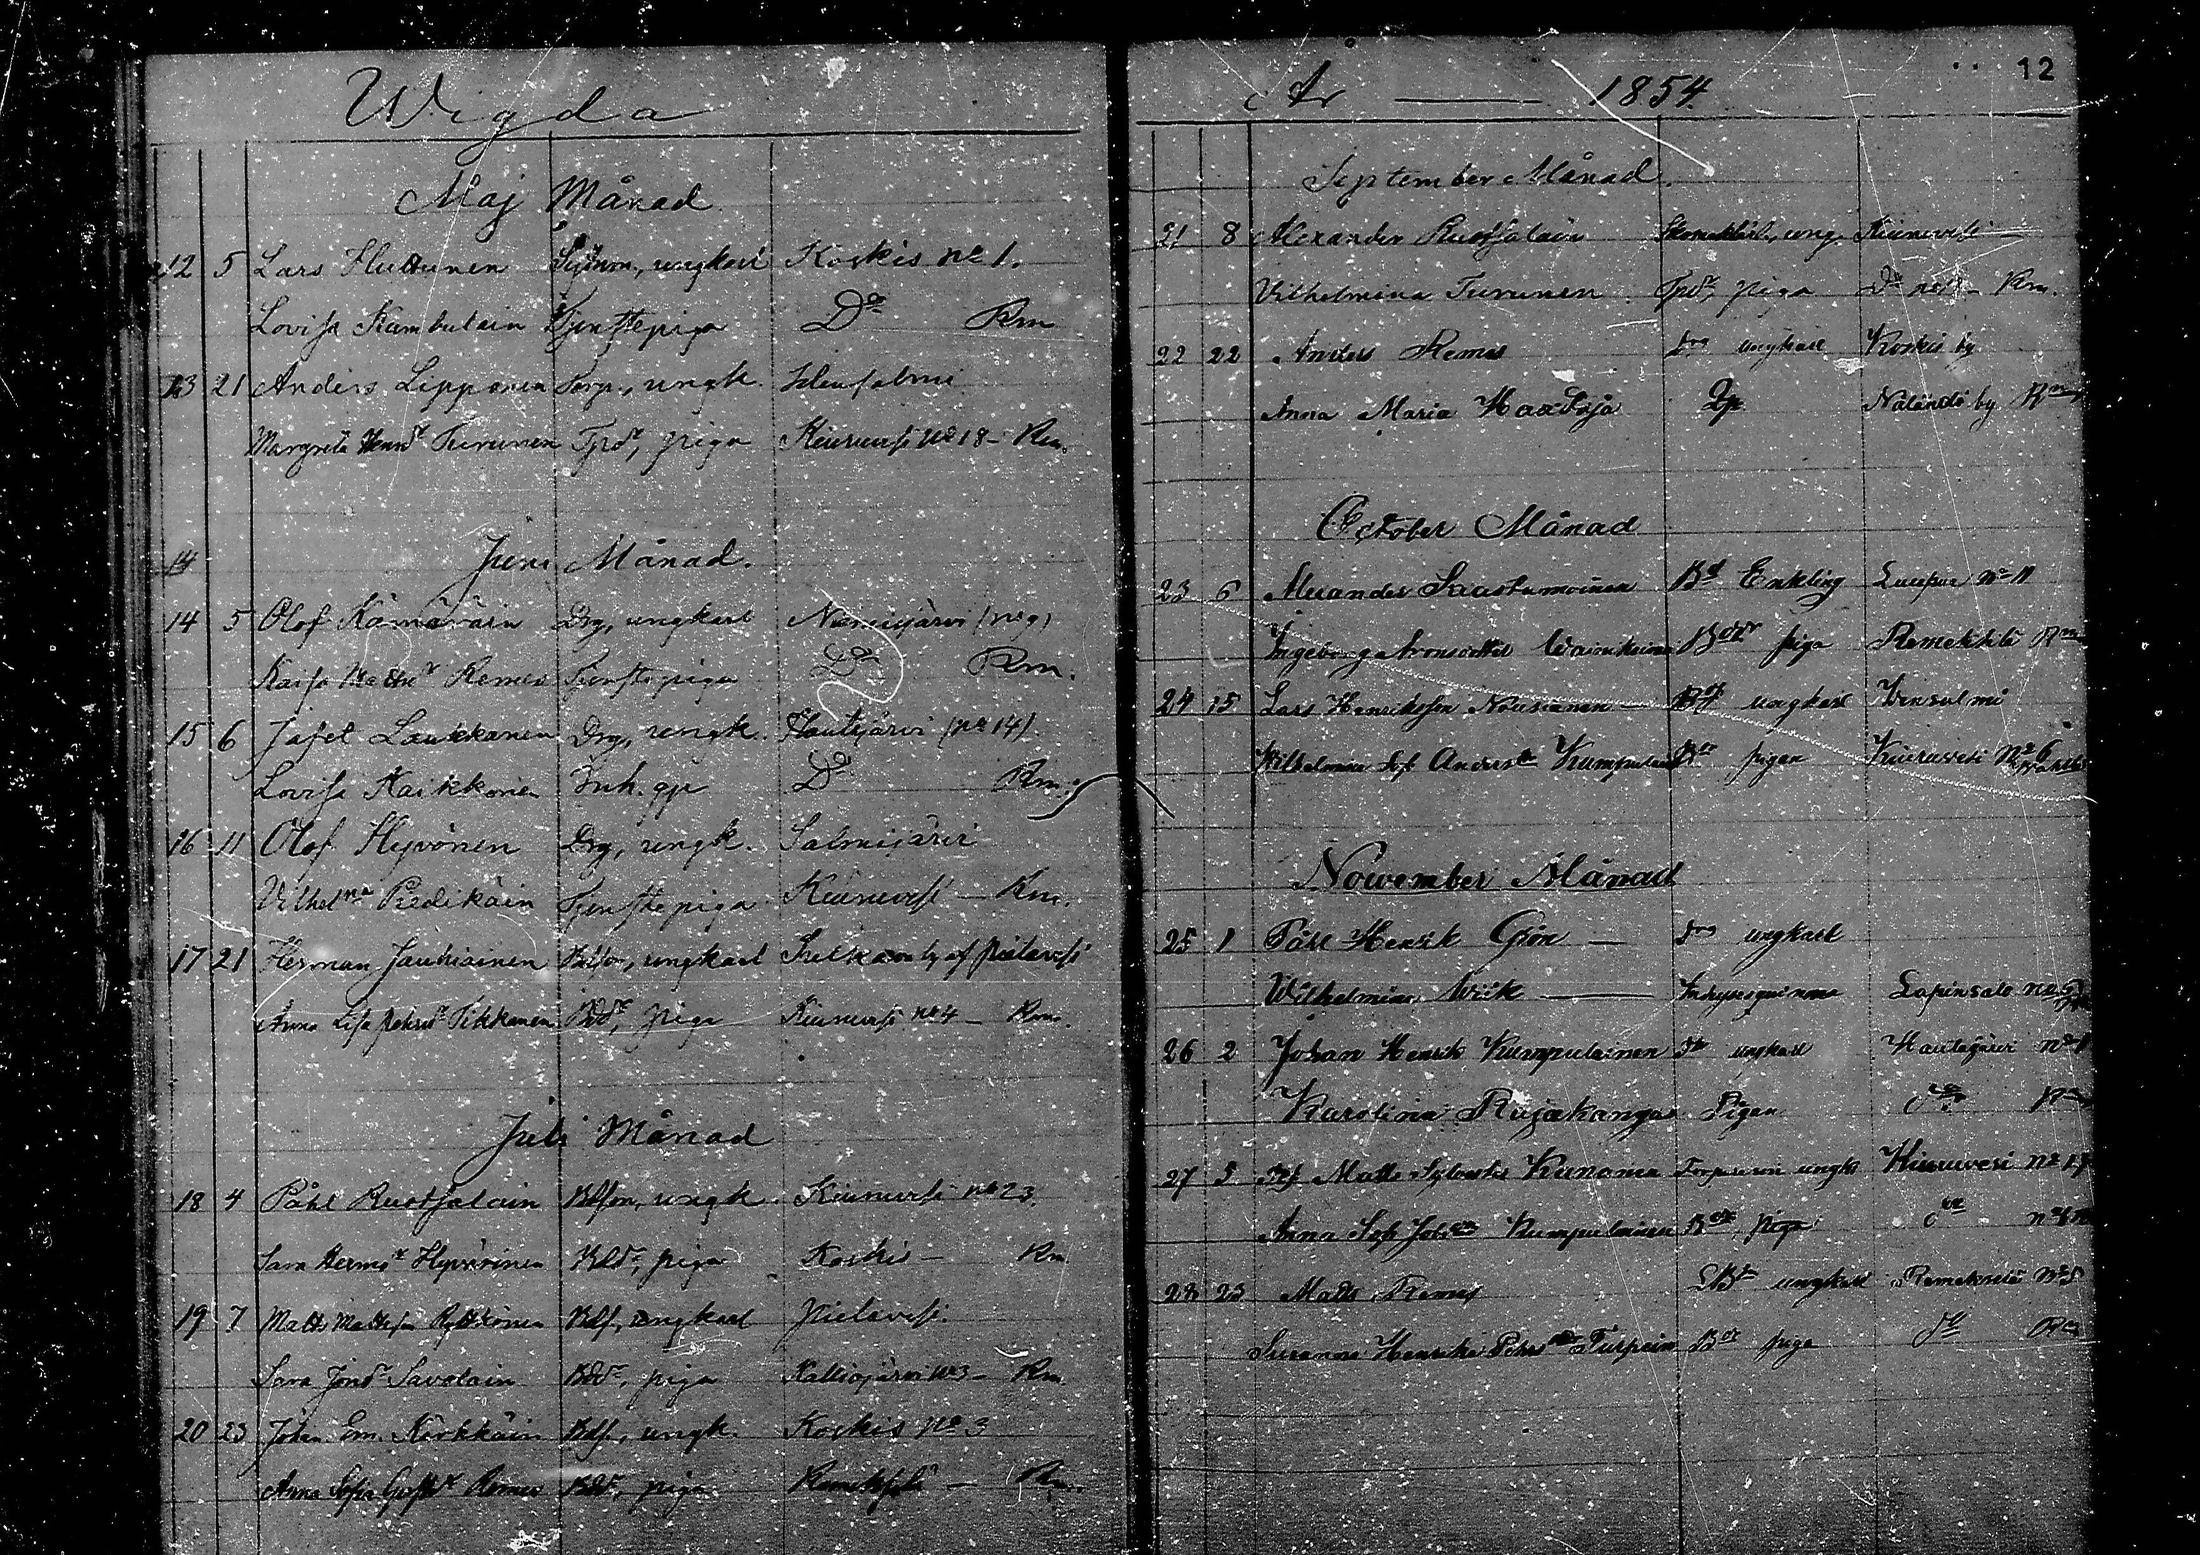 Wigda
Maj Månad
12 5 Lars Huttunen ungkarl Koskis No 1.
Lovisa Kumbulain Tjenstepiga Do Rm
13 21 Anders Lipponen Torp., ungk. Idensalmi
Margreta Henrdr Turunen Tpdr, piga Kiuruvesi No 18 – Rm.
14
Juni Månad.
14 5 Olof Kämäräin Drg, ungkarl Niemisjärvi (No 9)
Kaisa Mattsdr Remes Tjenstepiga Do Rm.
15 6 Jafet Laukkanen Drg, ungk. Hautajärvi (No 14)
Lovisa Kaikkonen Inh. qp Do Rm.
16 11 Olof Hyvönen Drg, ungk. Salmijärvi
Vilhelna Piedikäin Tjenstepiga Kiuruvesi – Rm.
17 21 Herman Jauhiainen Bdson, ungkarl Sulkava by af Pielavesi
Anna Lisa Petersdr Tikkanen Bddr, piga Kiuruvesi No 4 – Rm.
Juli Månad
18 4 Påhl Ruotsalain Bdson, ungk Kiuruvesi No 23.
Sara Hermsdr Hyvärinen Bddr, piga Koskis – Rm
19 7 Matts Mattsson Rytkönen Bds, ungkarl Pielavesi.
Sara Jonsdr Savolain Bddr, piga Kalliojärvi No 3 – Rm.
20 23 Johan Em. Kärkkäin Bds, ungk. Koskis No 3
Anna Sofia Gustdr Remes Bddr, piga Remeskylä – Rm.
År — 1854
12
September Månad.
21 8 Alexander Ruotsalain ung. Kiuruvesi
Vilhelmina Turunen Tpdr, piga Do Rm.
22 22 Anders Remes Drg ungkarl Koskis by
Anna Maria Haataja Qp Näländö by Rm
October Månad
23 6 Alexander Saastamoinen Bd Enkling Luupu No 11
Ingeborg Aronsdotter Wainikainen Bddr piga Remeskylä Rm
24 15 Lars Henriksson Nousiainen – ungkarl Idensalmi
Wilhelmina Sof Andersdr Kumpulain Bdr pigan Kiuruvesi No 6
Nowember Månad
25 1 Påhl Henrik Grön — Drg ungkarl
Wilhelmina Wik — Inhysesqvinna Lapinsalo No 5
26 2 Johan Henrik Kumpulainen Dr ungkarl Hautajärvi No 1
Karolina Rujakangas Pigan do Rm
27 5 Matts Sylvester Kananen Torparson ungk Kiuruvesi No 17
Anna Sof Johsdr Kumpulainen Bdr piga do
28 23 Mats Remes ungkarl Remeskylä No 5
Susanna Henrika Petersdr Turpein Bdr piga do Rm